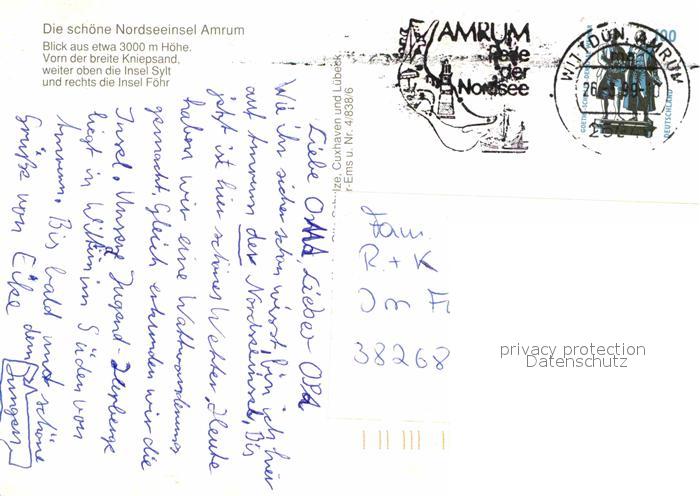 Die schöne Nordseeinsel Amrum
Blick aus etwa 3000 m Höhe.
Vorn der breite Kniepsand,
weiter oben die Insel Sylt
und rechts die Insel Föhr
AMRUM
Perle
der
Nordsee
WITTDÜN, AMRUM
100
DEUTSCHLAND
Cuxhaven und Lübeck
r-Ems u. Nr. 4/838/6
Liebe OMA, Lieber OPA
Wie ihr sicher schon wisst bin ich hier
auf Amrum der Nordseeinsel, Bis
jetzt ist hier schönes Wetter, Heute
haben wir eine Wattwanderung
gemacht, Gleich erkunden wir die
Insel. Unsere Jugend-Herberge
liegt in Wittün im Süden von
Amrum. Bis bald und schöne
Grüße von Eike dem
Jungen
Fam.
R. + K
Im Fl
38268
privacy protection
Datenschutz